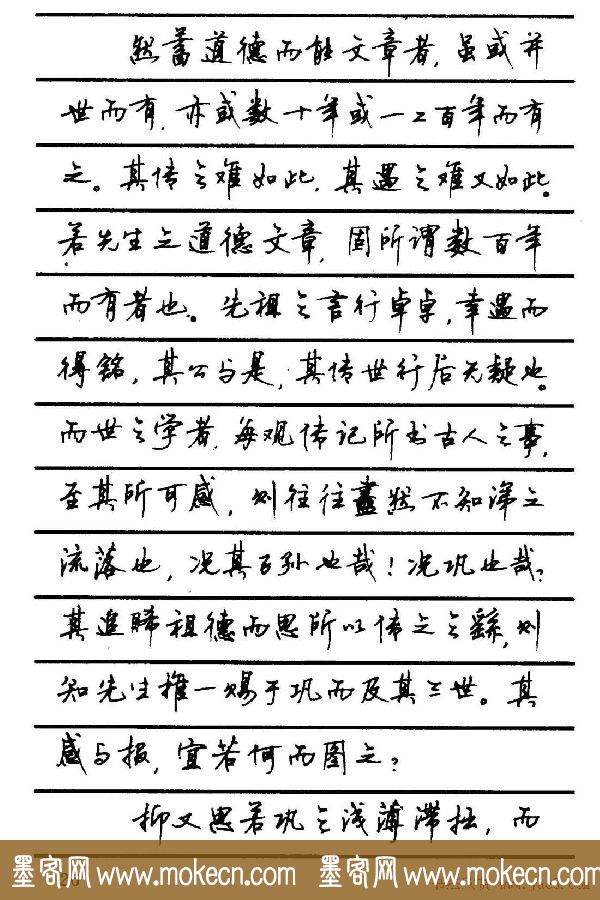 然蓄道德而能文章者，虽或并
世而有，亦或数十年或一二百年而有
之。其传之难如此，其遇之难又如此。
若先生之道德文章，固所谓数百年
而有者也。先祖之言行卓卓，幸遇而
得铭，其公与是，其传世行后无疑也。
而世之学者，每观传记所书古人之事，
至其所可感，则往往盡然不知涕之
流落也，况其子孙也哉！况巩也哉？
其追睎祖德而思所以传之之繇，则
知先生推一赐于巩而及其三世。其
感与报，宜若何而图之？
抑又思若巩之浅薄滞拙，而
墨客网 www.mokecn.com 墨客网 www.mokecn.com